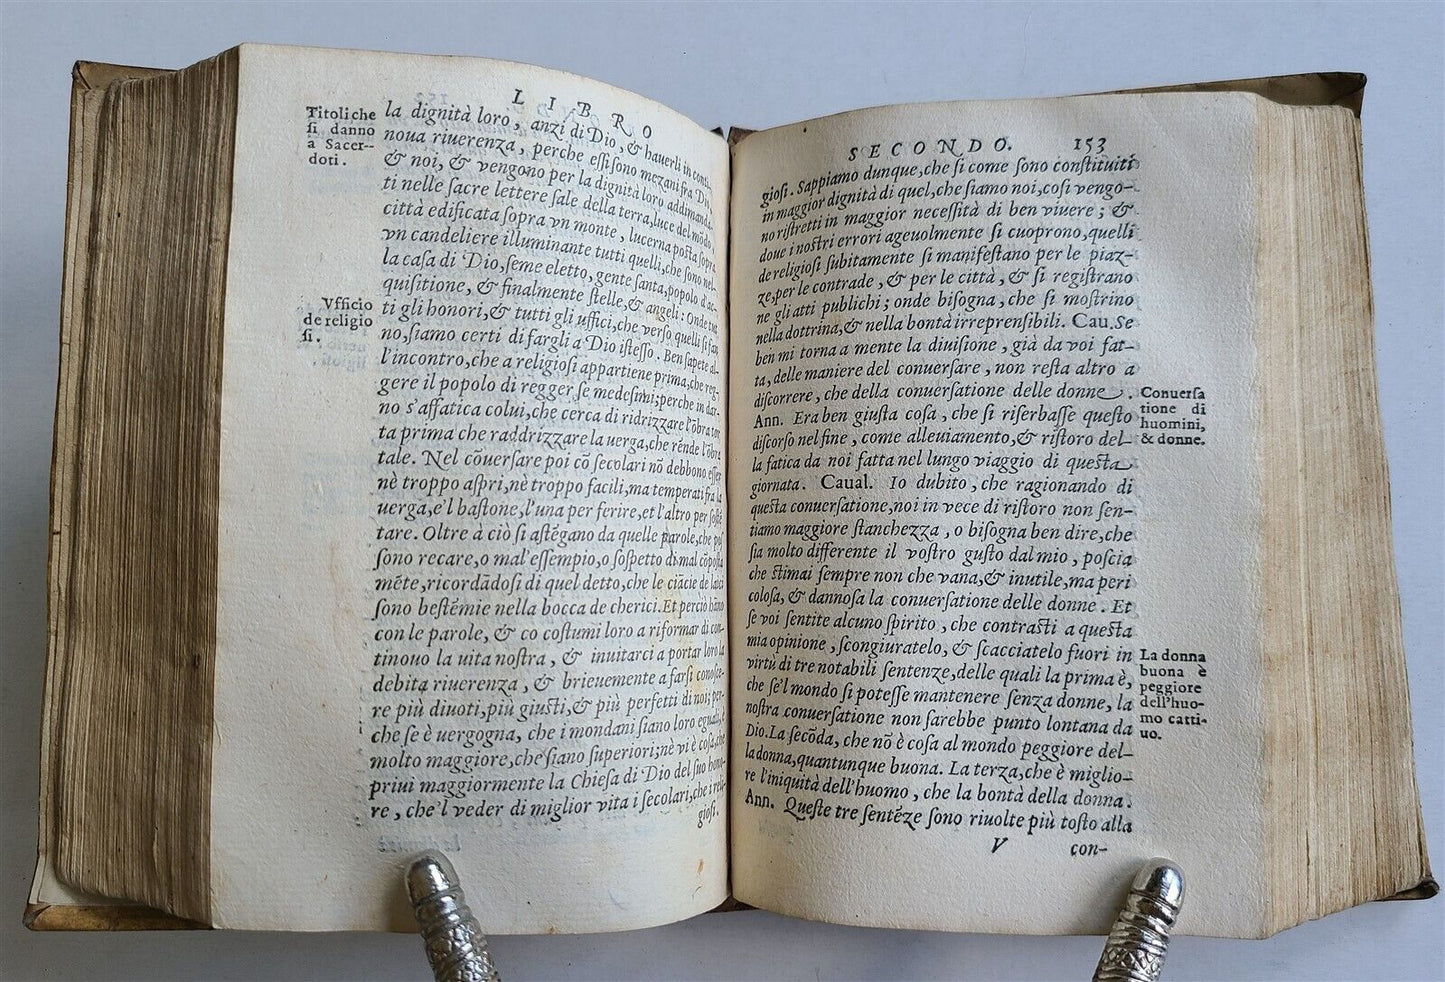 LIBRO
Titoli che
si danno
a Sacer-
doti.
la dignità loro, anzi di Dio, & hauerli in conti-
noua riuerenza, perche essi sono mezani fra Dio,
& noi, & vengono per la dignità loro addimanda-
ti nelle sacre lettere sale della terra, luce del mõdo,
città edificata sopra vn monte, lucerna posta sopra
vn candeliere illuminante tutti quelli, che sono nel-
la casa di Dio, seme eletto, gente santa, popolo d'ac-
quisitione, & finalmente stelle, & angeli: Onde tut
Vfficio
de religio
si.
ti gli honori, & tutti gli uffici, che verso quelli si fan
no, siamo certi di fargli a Dio istesso. Ben sapete al-
l'incontro, che a religiosi appartiene prima, che reg-
gere il popolo di regger se medesimi; perche in dar-
no s'affatica colui, che cerca di ridrizzare l'õbra tor
ta prima che raddrizzare la uerga, che rẽnde l'õbra
tale. Nel cõuersare poi cõ secolari nõ debbono esser
nè troppo aspri, nè troppo facili, ma temperati fra la
uerga, e'l bastone, l'una per ferire, et l'altro per sostẽ
tare. Oltre à ciò si astẽgano da quelle parole, che pos
sono recare, o mal'essempio, o sospetto di mal cõposta
mẽte, ricordãdosi di quel detto, che le ciãcie de laici
sono bestẽmie nella bocca de cherici. Et perciò hãno
con le parole, & co costumi loro a riformar di con-
tinouo la uita nostra, & inuitarci a portar loro la
debita riuerenza, & brieuemente a farsi conosce-
re più diuoti, più giusti, & più perfetti di noi; per-
che se è uergogna, che i mondani siano loro eguali, è
molto maggiore, che siano superiori; nè vi è cosa, che
priui maggiormente la Chiesa di Dio del suo hono-
re, che'l veder di miglior vita i secolari, che i reli-
giosi.
SECONDO. 153
giosi. Sappiamo dunque, che si come sono constituiti
in maggior dignità di quel, che siamo noi, cosi vengo-
no ristretti in maggior necessità di ben viuere; &
doue i nostri errori ageuolmente si cuoprono, quelli
de religiosi subitamente si manifestano per le piaz-
ze, per le contrade, & per le città, & si registrano
ne gli atti publichi; onde bisogna, che si mostrino
nella dottrina, & nella bontà irreprensibili. Cau. Se
ben mi torna a mente la diuisione, già da voi fat-
ta, delle maniere del conuersare, non resta altro a
discorrere, che della conuersatione delle donne.
Conuersa
tione di
huomini,
& donne.
Ann. Era ben giusta cosa, che si riserbasse questo
discorso nel fine, come alleuiamento, & ristoro del-
la fatica da noi fatta nel lungo viaggio di questa
giornata. Caual. Io dubito, che ragionando di
questa conuersatione, noi in vece di ristoro non sen-
tiamo maggiore stanchezza, o bisogna ben dire, che
sia molto differente il vostro gusto dal mio, poscia
che stimai sempre non che vana, & inutile, ma peri
colosa, & dannosa la conuersatione delle donne. Et
se voi sentite alcuno spirito, che contrasti a questa
mia opinione, scongiuratelo, & scacciatelo fuori in
virtù di tre notabili sentenze, delle quali la prima è,
La donna
buona è
peggiore
dell'huo-
mo catti-
uo.
che se'l mondo si potesse mantenere senza donne, la
nostra conuersatione non sarebbe punto lontana da
Dio. La secõda, che nõ è cosa al mondo peggiore del-
la donna, quantunque buona. La terza, che è miglio-
re l'iniquità dell'huomo, che la bontà della donna.
Ann. Queste tre sentẽze sono riuolte più tosto alla
V con-